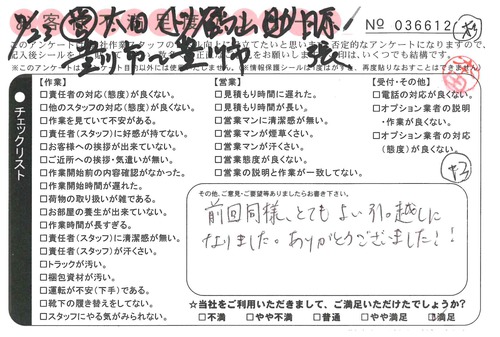 № 036612
チェックリスト
【作業】
□責任者の対応(態度)が良くない。
□他のスタッフの対応(態度)が良くない。
□作業を見ていて不安がある。
□責任者(スタッフ)に好感が持てない。
□お客様への挨拶が出来ていない。
□ご近所への挨拶・気遣いが無い。
□作業開始前の内容確認がなかった。
□作業開始時間が遅れた。
□荷物の取り扱いが雑である。
□お部屋の養生が出来ていない。
□作業時間が長すぎる。
□責任者(スタッフ)に清潔感が無い。
□責任者(スタッフ)が汗くさい。
□トラックが汚い。
□梱包資材が汚い。
□運転が不安(下手)である。
□靴下の履き替えをしてない。
□スタッフにやる気がみられない。
【営業】
□見積もり時間に遅れた。
□見積もり時間が長い。
□営業マンに清潔感が無い。
□営業マンが煙草くさい。
□営業マンが汗くさい。
□営業態度が良くない。
□営業の説明と作業が一致してない。
【受付・その他】
□電話の対応が良くない。
□オプション業者の説明
・作業が良くない。
□オプション業者の対応
(態度)が良くない。
その他、ご意見・ご要望等ありましたらお書き下さい。
前回同様、とても よい引越しに
なりました。ありがとうございました!!
☆当社をご利用いただきまして、ご満足いただけたでしょうか?
□不満 □やや不満 □普通 □やや満足 □満足